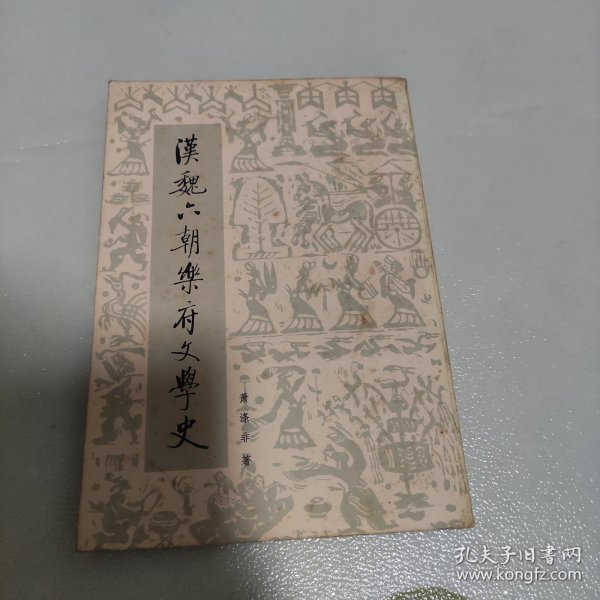 漢魏六朝樂府文學史
蕭滌非著
孔夫子旧书网
www.kongfz.com